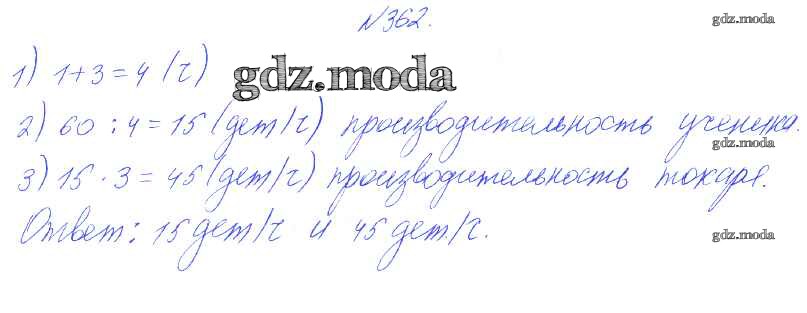 №362.
gdz.moda
1) 1+3=4 (ч)
gdz.moda
2) 60 : 4 = 15 (дет/ч) производительность ученика.
gdz.moda
3) 15 · 3 = 45 (дет/ч) производительность токаря.
Ответ: 15 дет/ч и 45 дет./ч.
gdz.moda